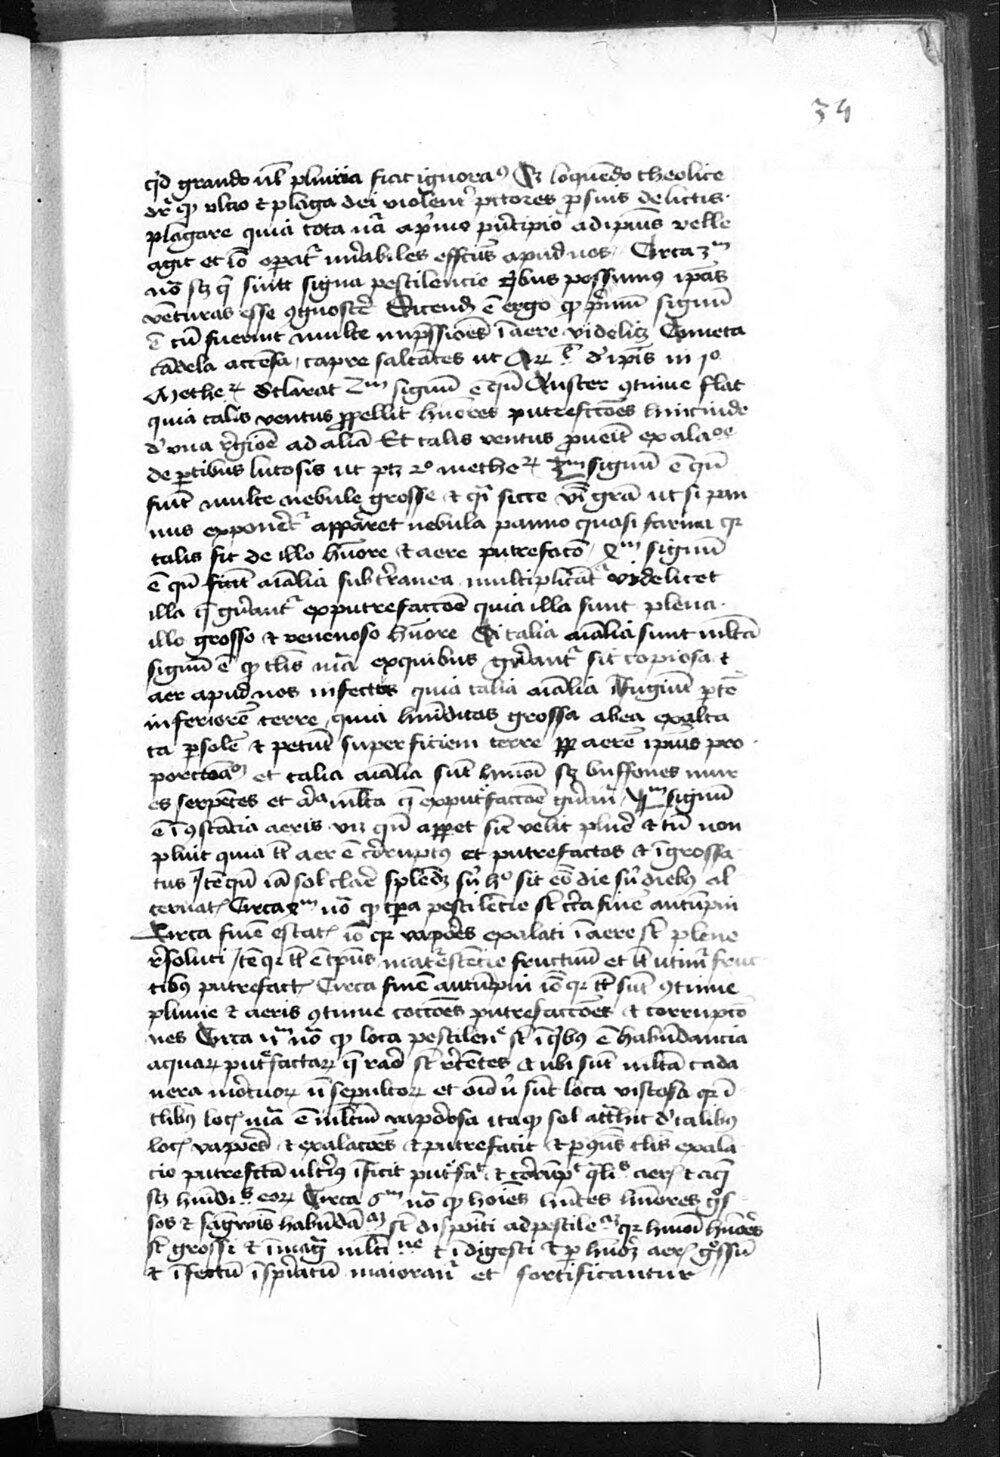 34
qd grando vel pluvia fiat ignoratur Et loquendo theolice
dr qp ultio et plaga dei violent pctores p suis delictis
plagare quia tota nra a pmo pncipio ad ipius velle
agit et io opatr mirabiles effctus apud nos Circa 3m
no sz q sunt signa pestilencie qbus possumus ipas
venturas esse 9gnoscere Dicend e ergo qp primum signu
e cu fuerint multe inpssiones i aere videlicz Cometa
candela accensa capre saltantes ut Ar ipis in 1o
Methe declarat 2m signu e qn Auster 9tinue flat
quia talis ventus ppellit humores putrefctoes hincinde
d una regioe ad alia Et talis ventus pveit
de ptibus lutosis ut ptz 2o methe 3m signu e qn
sunt multe nebule grosse et qi sicce vbi gra ut si pan
nus exponeret appareret nebula panno quasi farina qr
talis fit de illo humore et aere putrefacto 4m signu
e qn sunt aialia subterranea multiplicat videlicet
illa q gnant ex putrefaccoe quia illa sunt plena
illo grosso et venenoso humore Et talia aialia sunt multa
signu e qp tlis ma ex quibus gnant sit copiosa et
aer apud nos infectus quia talia aialia fugiunt pte
inferiore terre quia humiditas grossa ab ea exalta
ta p sole et petunt superficiem terre pp aere ipius pro
porcoa et talia aialia sut hmoi sz buffones mur
es serpetes et multa q ex putfaccoe gnant 5m signu
e i9stancia aeris viz qn appet sic velit pluere et tn non
pluit quia tc aer e corruptus et putrefactos et igrossa
tus Ite qn ia sol clare splendz sit eo die diebus al
ternat Circa 4m no qp tpa pestilencie st circa fine autupni
Circa fine estat io qr vapores exalati i aere st plene
resoluti Ite qr tc e tpus maturescencie fructuu et tc utimr fruc
tibus putrefact Circa fine autupni io qr tc sunt 9tinue
pluvie et aeris 9tinue coccoes putrefaccoes et corrupcio
nes Circa 5m no qp loca pestilen st i qbus e habundancia
aquar putfactar q raro st recentes et ubi sut multa cada
vera mortuor n sepultor et sunt loca viscosa qr i
tlibus loc ma e multum vaporosa ita qp sol attrhit d talibus
loc vapores et exalacoes et putrefacit et p 9ns tlis exala
cio putrefcta ulterius ificit et aer et aq
sz eor Circa 6m no qp hoies hntes humores gros
sos et sagwis habunda st dispoiti ad pestile qr hmoi humores
st grossi et i mag multi et idigesti et p aer grossu
et ifectu ispiratu maiorant et fortificantur